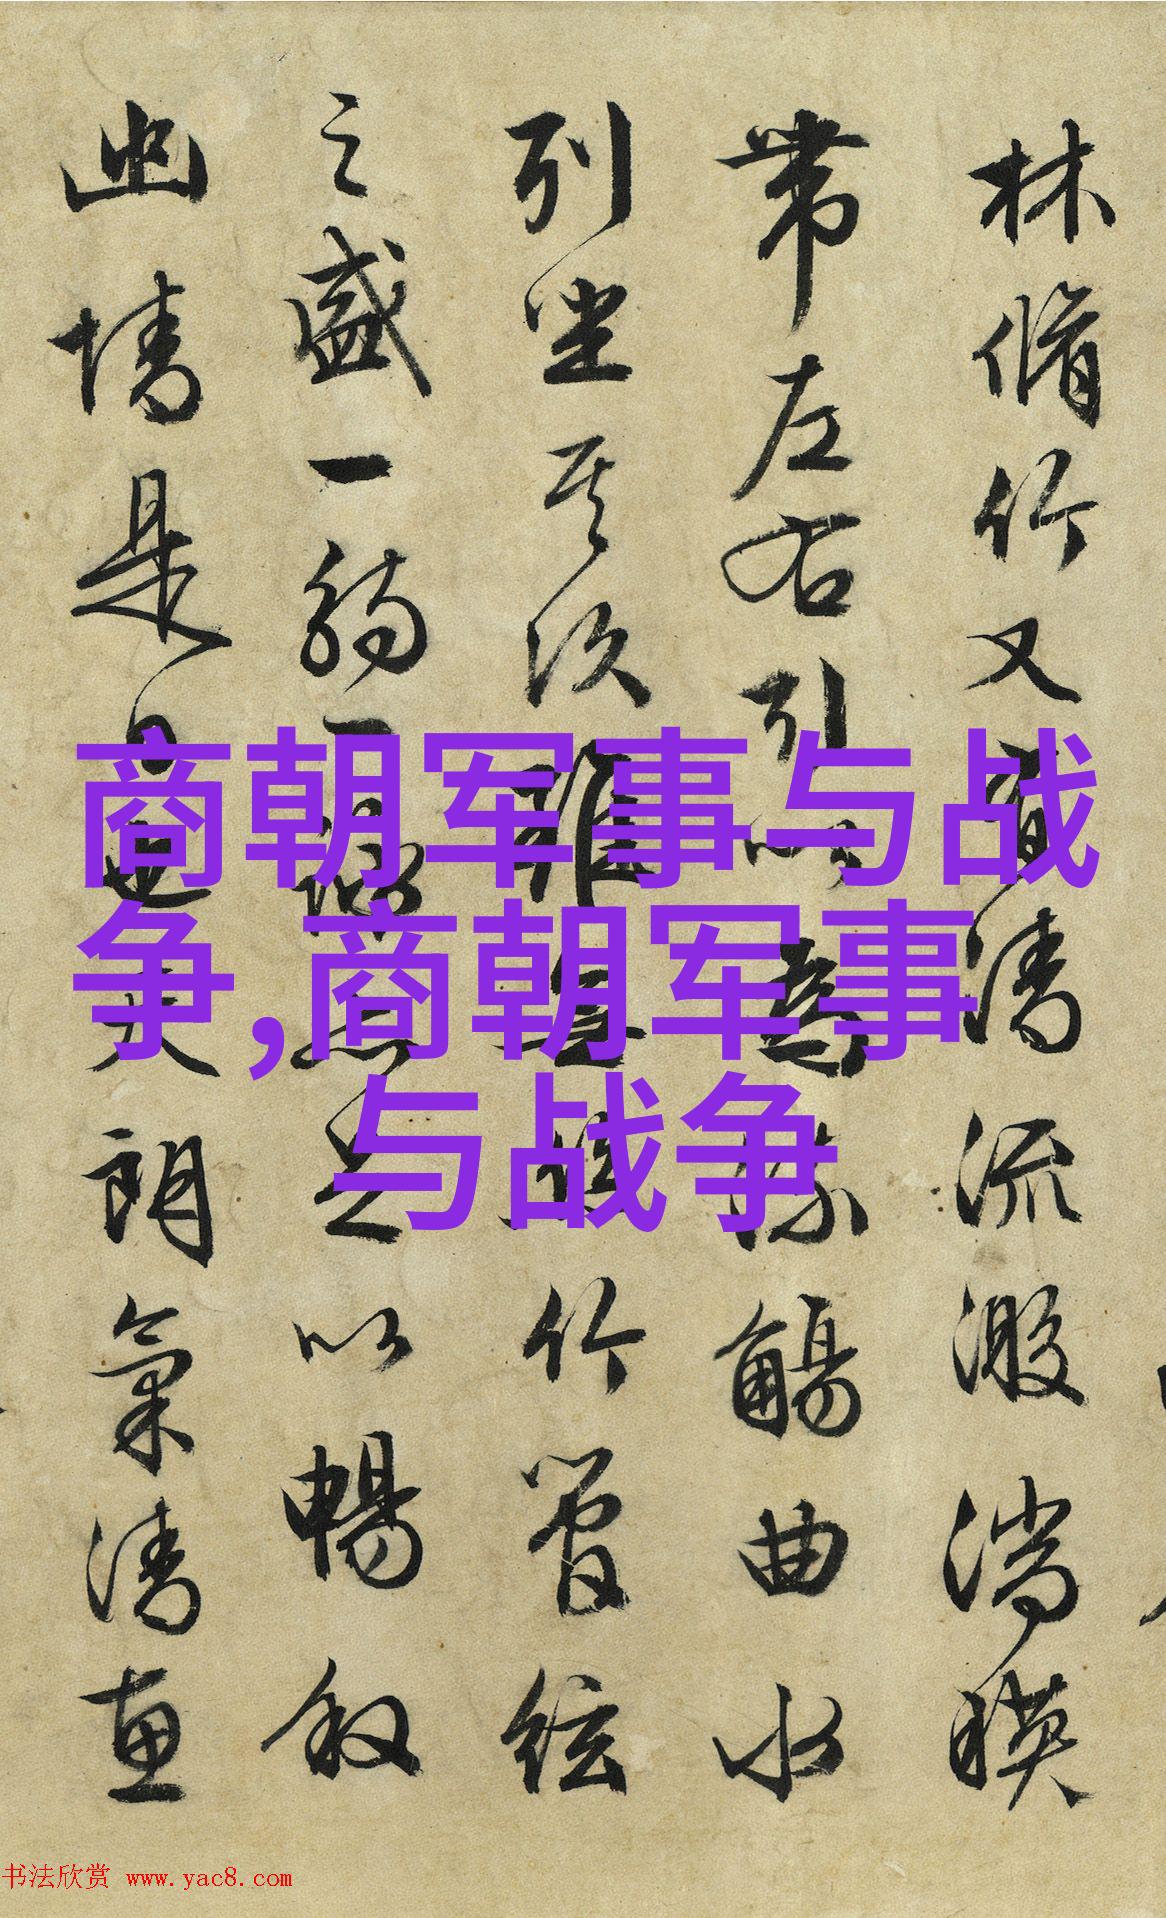 林脩竹又有清流激湍暎
帶左右引以為流觴曲水
列坐其次雖無絲竹管絃
之盛一觴一詠亦足以暢叙
幽情是日也天朗氣清惠
商朝军事与战
争,商朝军事
与战争
书法欣赏 www.yac8.com